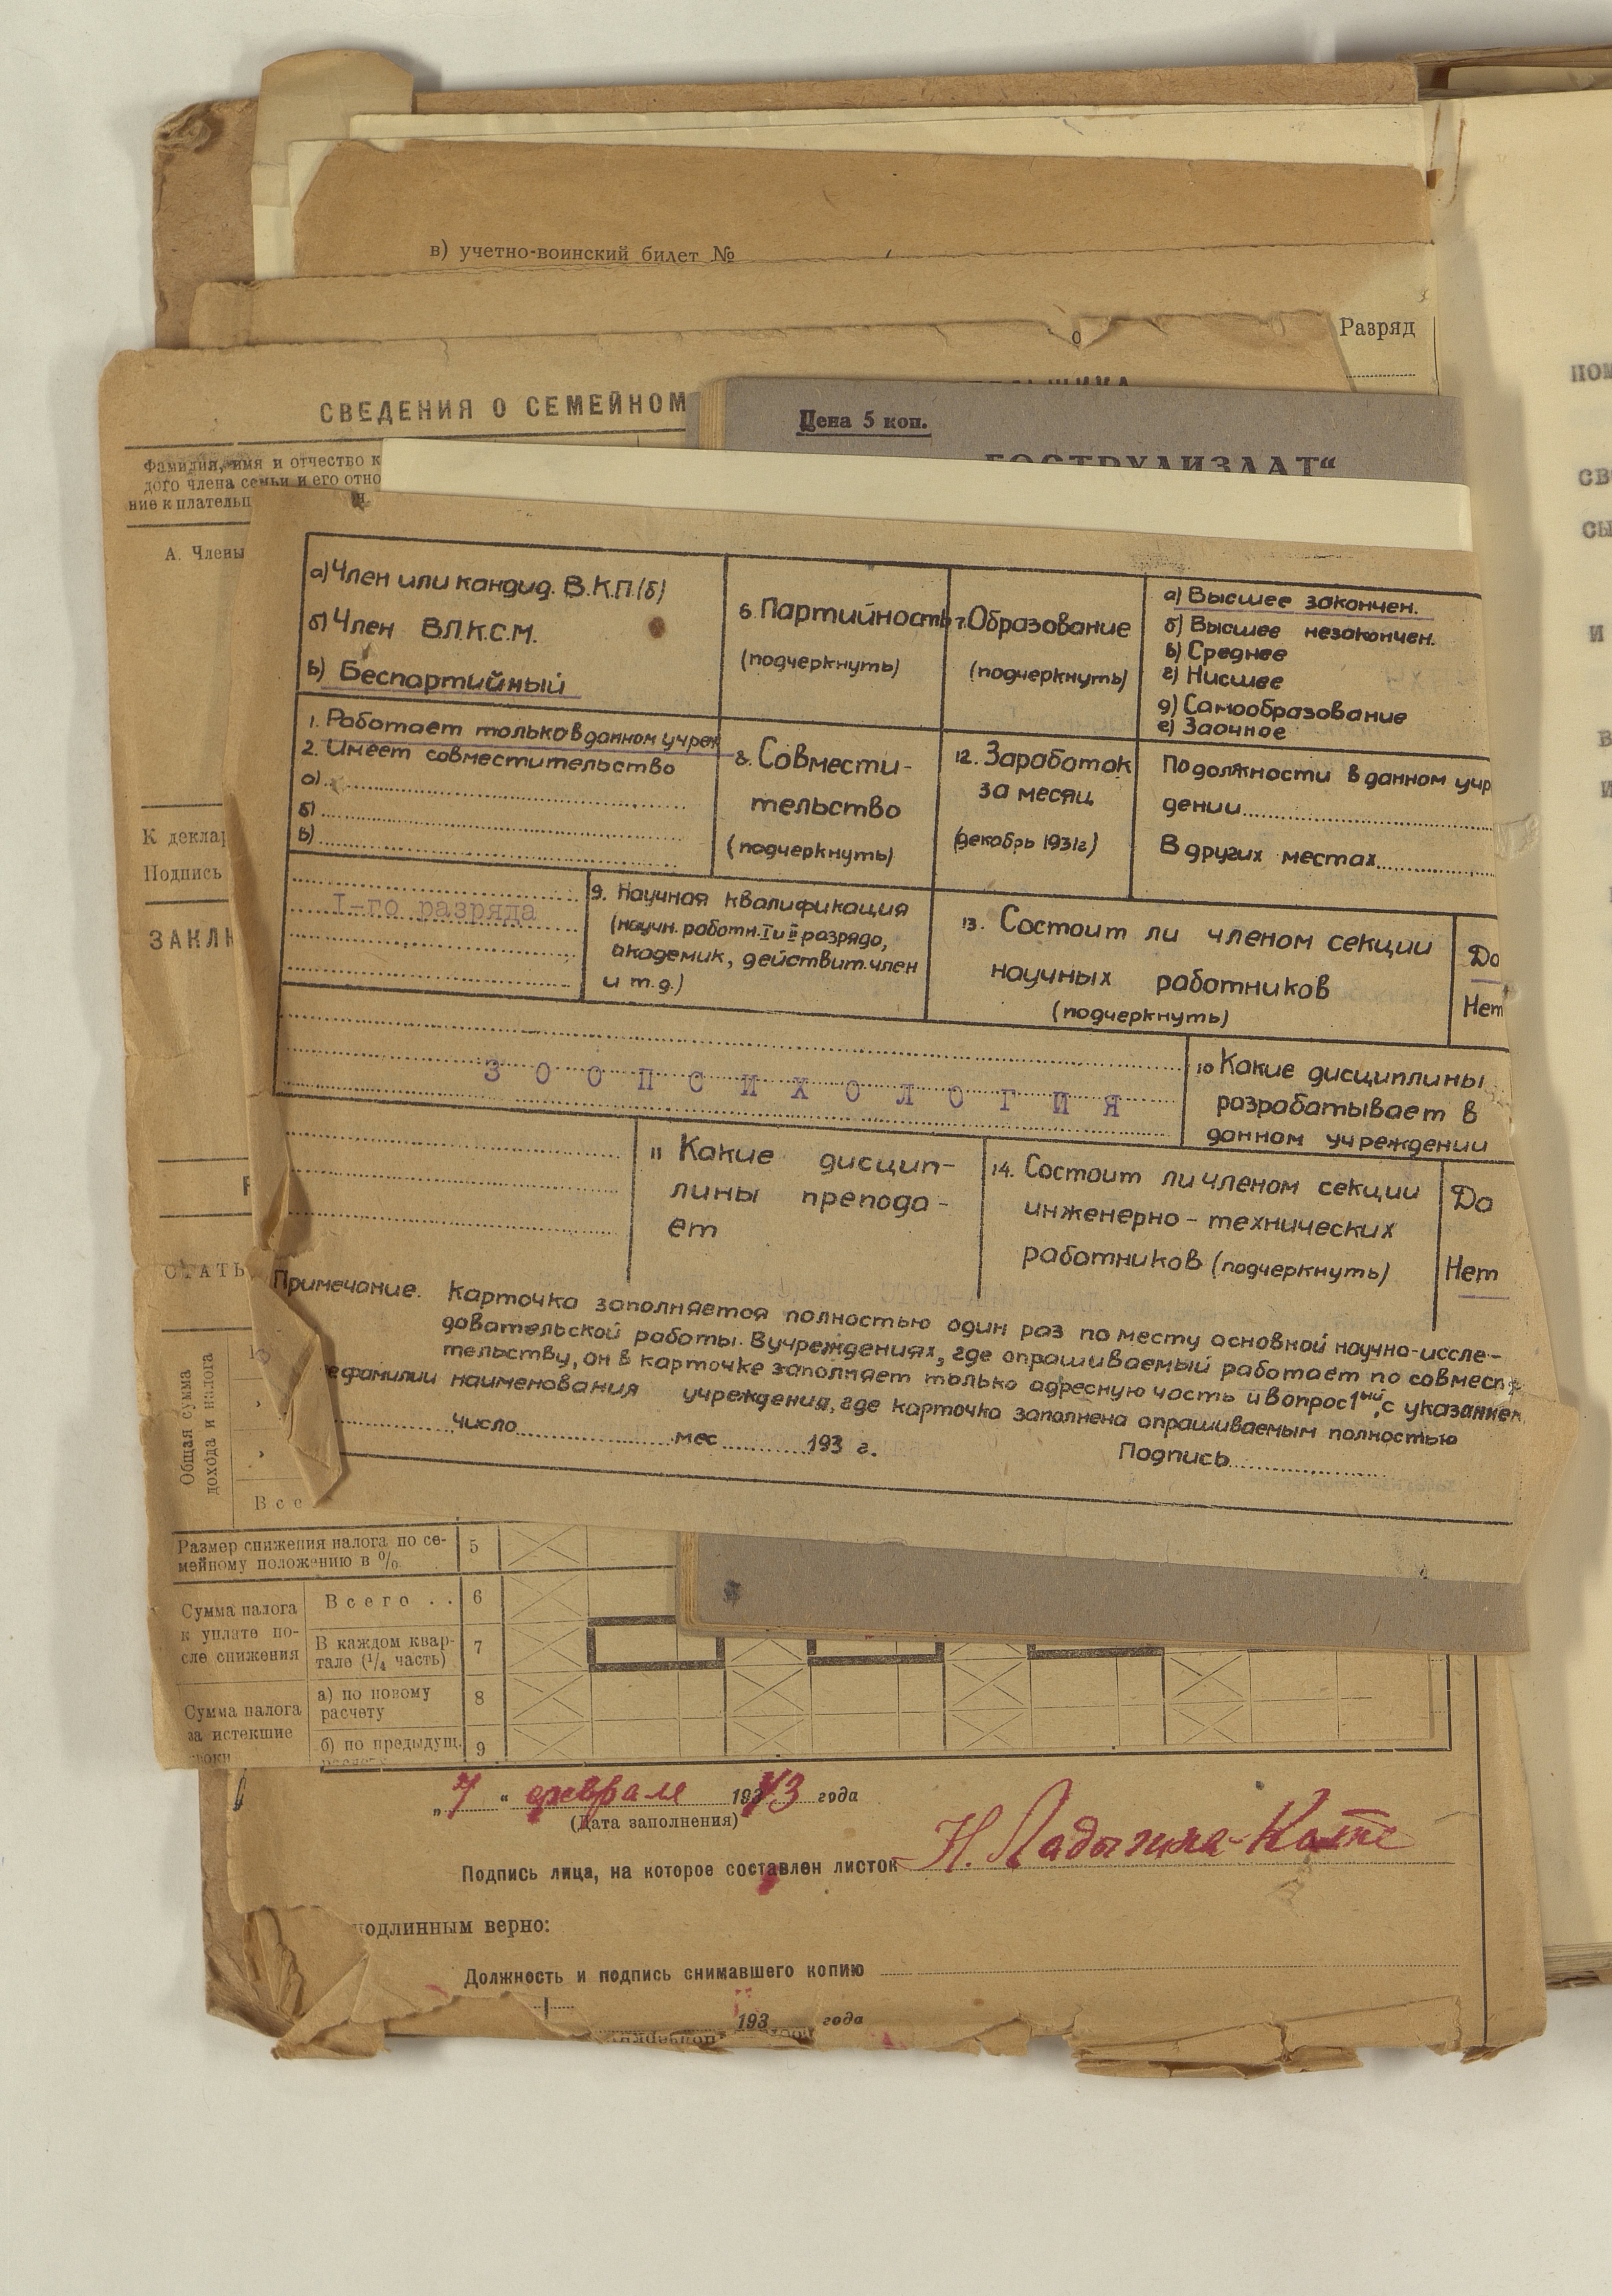 в) учетно-воинский билет №
Разряд
СВЕДЕНИЯ О СЕМЕЙНОМ
Цена 5 коп.
„ГОСТРУДИЗДАТ“
Фамилия, имя и отчество к
дого члена семьи и его отно
ние к плательщ
А. Члены
а) Член или кандид. В.К.П.(б)
б) Член ВЛ.К.С.М.
в) Беспартийный
6. Партийность
(подчеркнуть)
7. Образование
(подчеркнуть)
а) Высшее закончен.
б) Высшее незакончен.
в) Среднее
г) Нисшее
д) Самообразование
е) Заочное
1. Работает только в данном учреж
2. Имеет совместительство
а)
б)
в)
8. Совмести-
тельство
(подчеркнуть)
12. Заработок
за месяц
(декабрь 1931г)
По должности в данном учр
дении
В других местах
I-го разряда
9. Научная квалификация
(научн. работн. I и II разряда,
академик, действит. член
и т.д.)
13. Состоит ли членом секции
научных работников
(подчеркнуть)
Да
Нет
ЗООПСИХОЛОГИЯ
10 Какие дисциплины
разрабатывает в
данном учреждении
11 Какие дисцип-
лины препода-
ет
14. Состоит ли членом секции
инженерно-технических
работников (подчеркнуть)
Да
Нет
Примечание. Карточка заполняется полностью один раз по месту основной научно-иссле-
довательской работы. В учреждениях, где опрашиваемый работает по совмести
тельству, он в карточке заполняет только адресную часть и вопрос 1ый, с указанием
ефамилии наименования учреждения, где карточка заполнена опрашиваемым полностью
число мес 193 г.
Подпись
К деклар
Подпись
ЗАКЛЮ
СТАТЬ
Общая сумма
дохода и налога
Все
Размер снижения налога по се-
мейному положению в % 5
Сумма налога
к уплате по-
сле снижения
Всего . . 6
В каждом квар-
тале (1/4 часть) 7
Сумма налога
за истекшие
сроки
а) по новому
расчету 8
б) по предыдущ. 9
„7“ февраля 1943 года
(Дата заполнения)
Подпись лица, на которое составлен листок Н. Ладыгина-Котс
подлинным верно:
Должность и подпись снимавшего копию
193 года